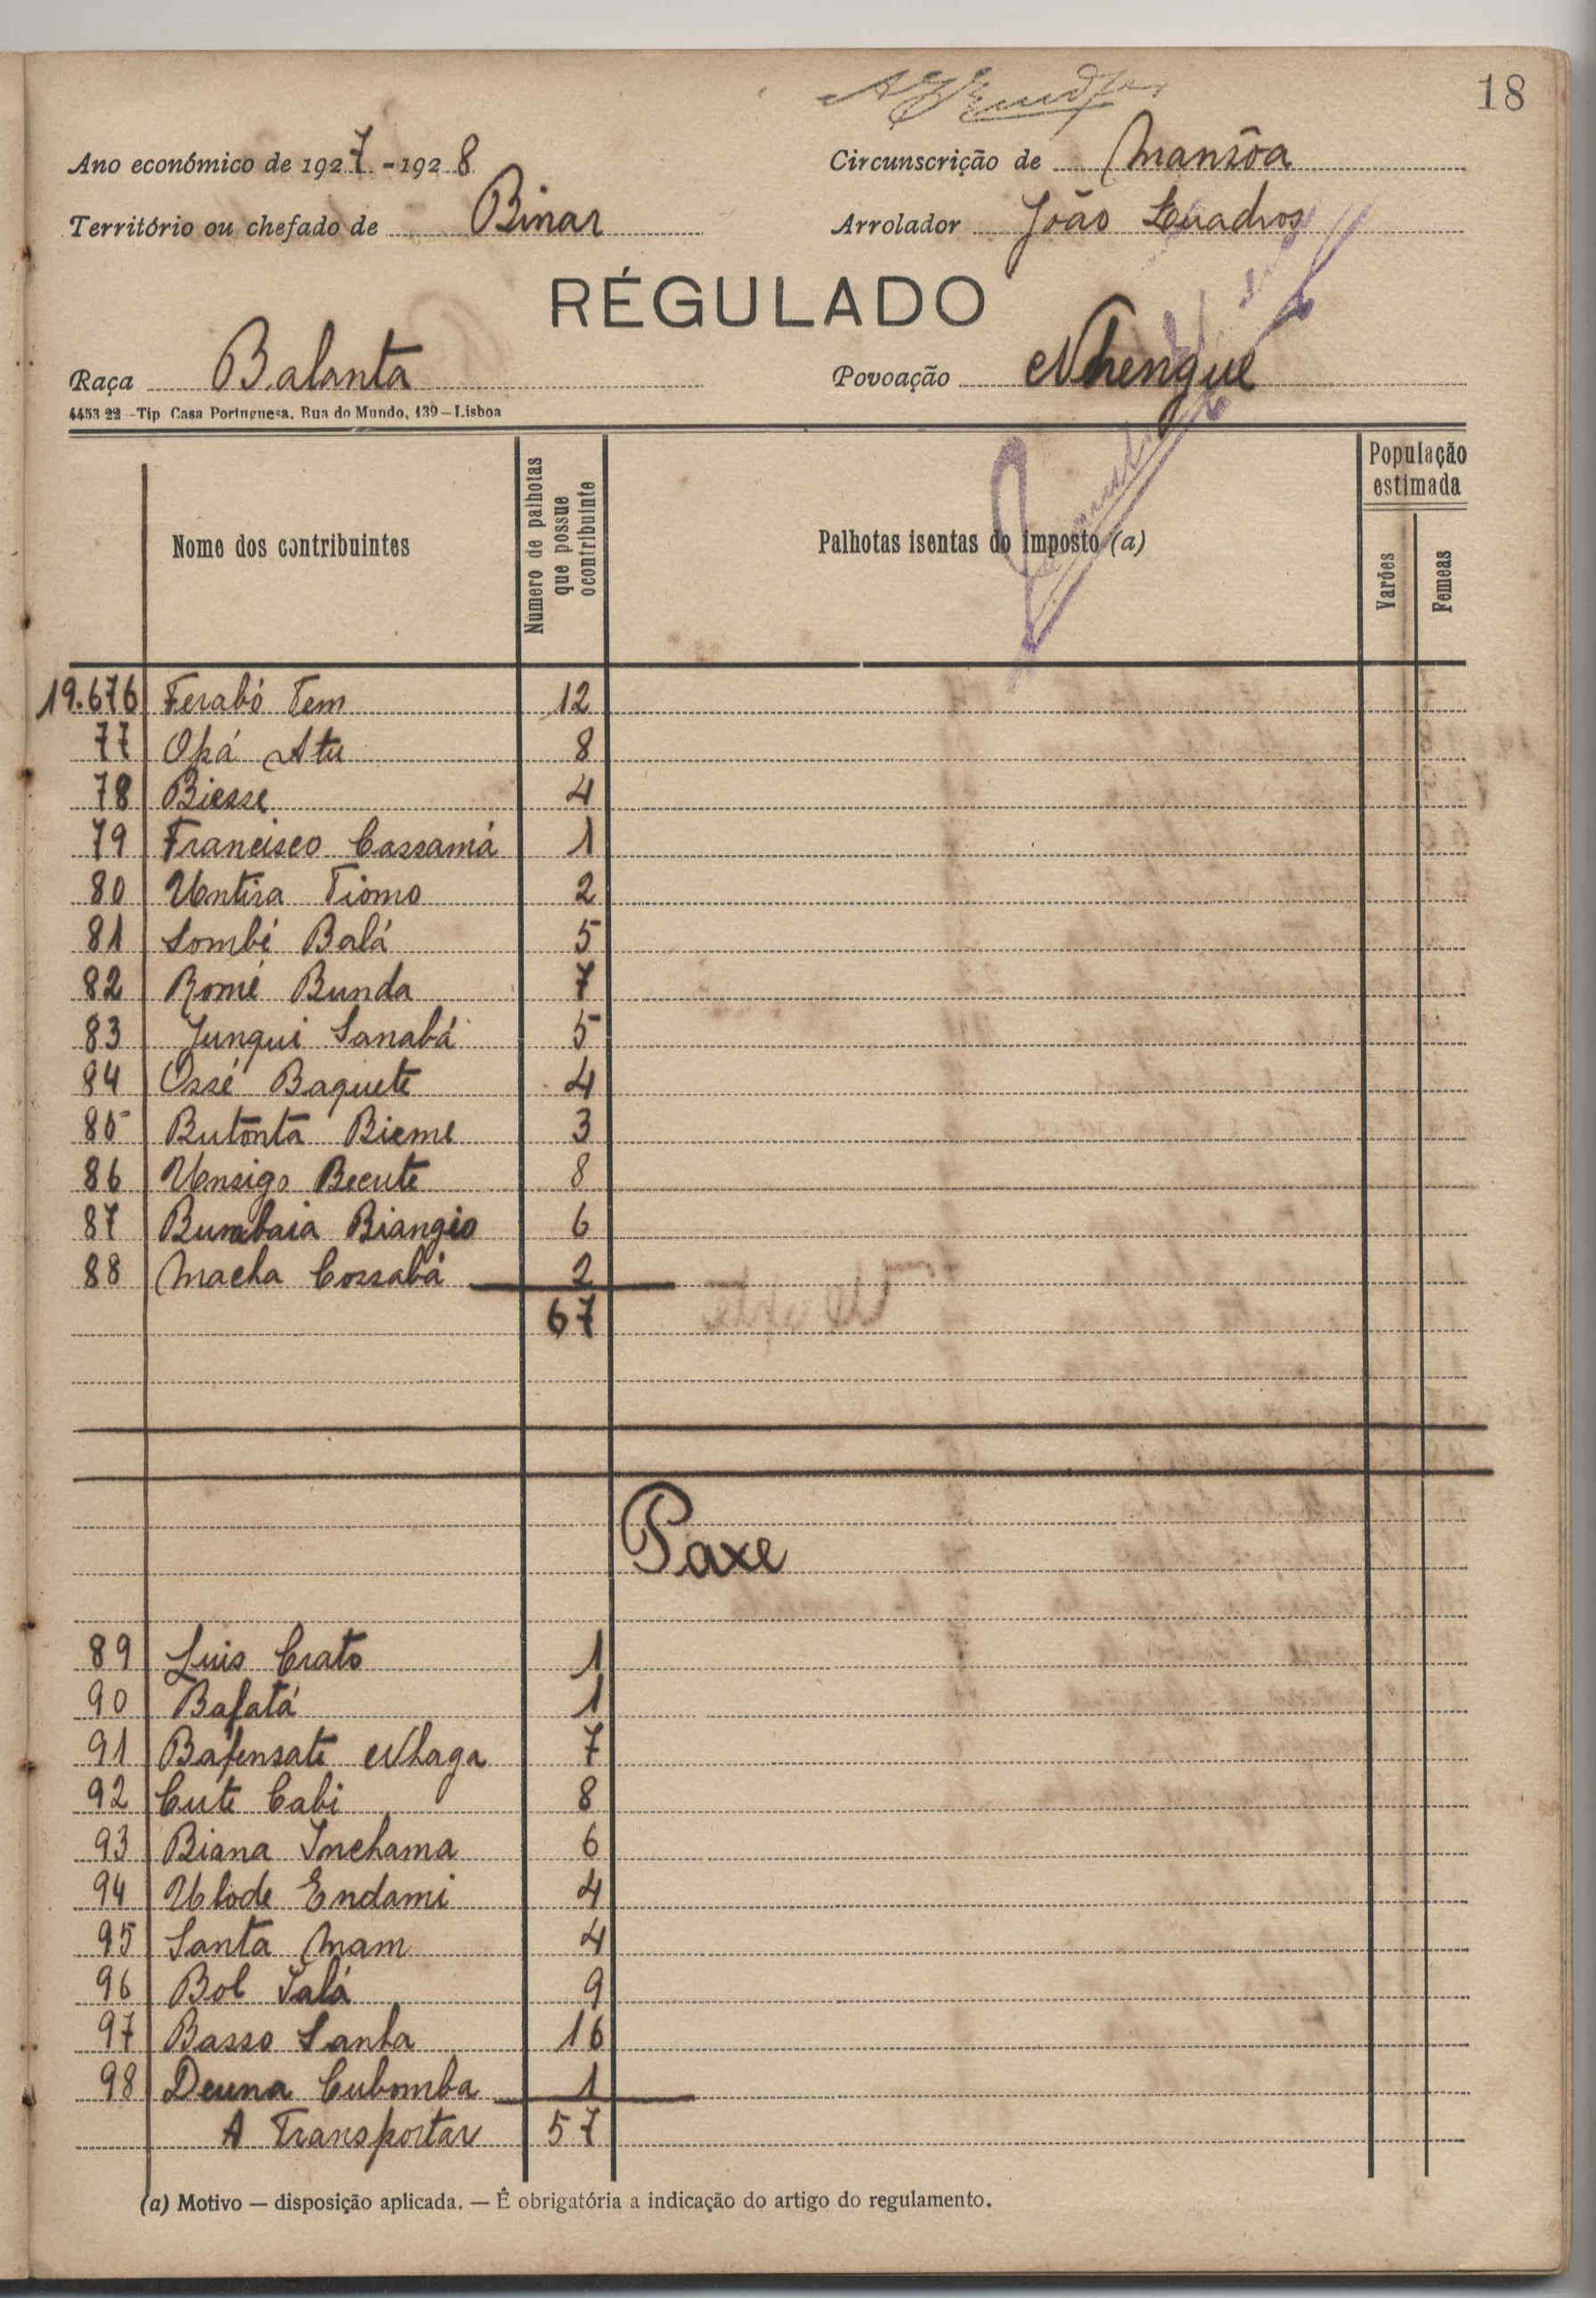 18
Ano económico de 1927-1928
Circunscrição de Mansôa
Território ou chefado de Binar
Arrolador João Quadros
RÉGULADO
Raça Balanta
Povoação Nhengue
4453 22 -Tip Casa Portuguesa, Rua do Mundo, 139-Lisboa
Nome dos contribuintes
Numero de palhotas que possue ocontribuinte
Palhotas isentas do imposto (a)
População estimada
Varões
Femeas
19.676 Ferabó Tem 12
77 Opá Atu 8
78 Biesse 4
79 Francisco Cassamá 1
80 Untira Tiomo 2
81 Sombé Balá 5
82 Romé Bunda 7
83 Jungui Sanabá 5
84 Ossé Baquete 4
85 Butonta Bieme 3
86 Unsigo Becute 8
87 Bumbaia Biangio 6
88 Macha Cossabá 2
67
Paxe
89 Luis Crato 1
90 Bafatá 1
91 Bafensate Nhaga 7
92 Cute Cabi 8
93 Biana Inchama 6
94 Ulode Endami 4
95 Santa Mam 4
96 Bol Ialá 9
97 Basso Sanha 16
98 Deuna Cubomba 1
A Transportar 57
(a) Motivo — disposição aplicada. — Ê obrigatória a indicação do artigo do regulamento.